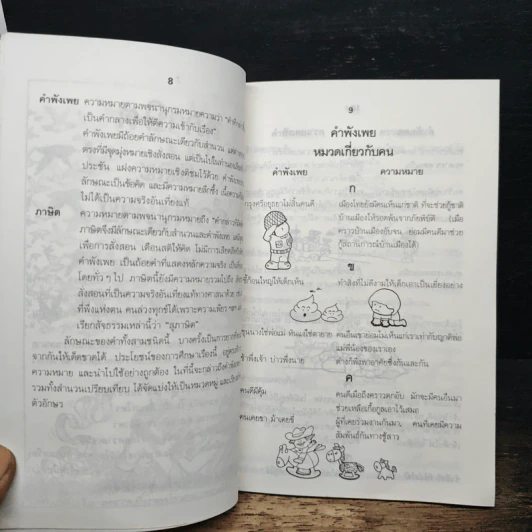 8
คำพังเพย ความหมายตามพจนานุกรมหมายความว่า "คำที่กล่าว
เป็นคำกลางเพื่อให้ตีความเข้ากับเรื่อง"
คำพังเพยมีถ้อยคำลักษณะเดียวกับสำนวน แต่
ตรงที่มีจุดมุ่งหมายเชิงสั่งสอน แต่เป็นไปในทำนอง
ประชัน แฝงความหมายเชิงติชมไว้ด้วย คำพังเพย
ลักษณะเป็นข้อคิด และมีความหมายลึกซึ้ง เนื้อความ
ไม่ได้เป็นความจริงอันเที่ยงแท้
ภาษิต ความหมายตามพจนานุกรมหมายถึง
ภาษิตจึงมีลักษณะเดียวกับสำนวนและคำพังเพย
เพื่อการสั่งสอน เตือนสติให้คิด ไม่มีการเสียดสี
คำพังเพย เป็นถ้อยคำที่แสดงหลักความจริง
โดยทั่ว ๆ ไป ภาษิตนี้ยังมีความหมายรวมไปถึง
สั่งสอนที่เป็นความจริงอันเที่ยงแท้ทางศาสนาด้วย
ที่พึ่งแห่งตน คนล่วงทุกข์ได้เพราะความเพียร ฯลฯ
เรียกสัจธรรมเหล่านี้ว่า "สุภาษิต"
ลักษณะของคำทั้งสามชนิดนี้ บางครั้งเป็นการ
จากกันให้ชัดขาดได้ ประโยชน์ของการศึกษาเรื่องนี้
ความหมาย และนำไปใช้อย่างถูกต้อง ในที่นี้จะกล่าวถึง
รวมทั้งสำนวนเปรียบเทียบ ได้จัดแบ่งให้เป็นหมวดหมู่
ตัวอักษร
9
คำพังเพย
หมวดเกี่ยวกับคน
คำพังเพย ความหมาย
ก
กรุงศรีอยุธยาไม่สิ้นคนดี เมืองไทยยังมีคนเห็นแก่ชาติ ที่จะช่วยกู้ชาติ
บ้านเมืองให้รอดพ้นจากภัยพิบัติ (เมื่อ
คราวบ้านเมืองคับขัน ย่อมมีคนดีมาช่วย
กู้สถานการณ์บ้านเมืองได้)
ข
ขี้ก้อนใหญ่ให้เด็กเห็น ทำสิ่งที่ไม่ดีงามให้เด็กเอาเป็นเยี่ยงอย่าง
ขุนนางใช่พ่อแม่ หินแง่ใช่ตายาย คนอื่นเขาย่อมไม่เห็นแก่เราเท่ากับญาติพ่อ
แม่พี่น้องของเราเอง
ข้าพึ่งเจ้า บ่าวพึ่งนาย ต่างก็พึ่งพาอาศัยซึ่งกันและกัน
ค
คนดีผีคุ้ม คนดีเมื่อถึงคราวตกอับ มักจะมีคนอื่นมา
ช่วยเหลือเกื้อกูลเอาไว้เสมอ
คนเคยขา ม้าเคยขี่ ผู้ที่เคยร่วมงานกันมา, คนที่เคยมีความ
สัมพันธ์กันทางชู้สาว